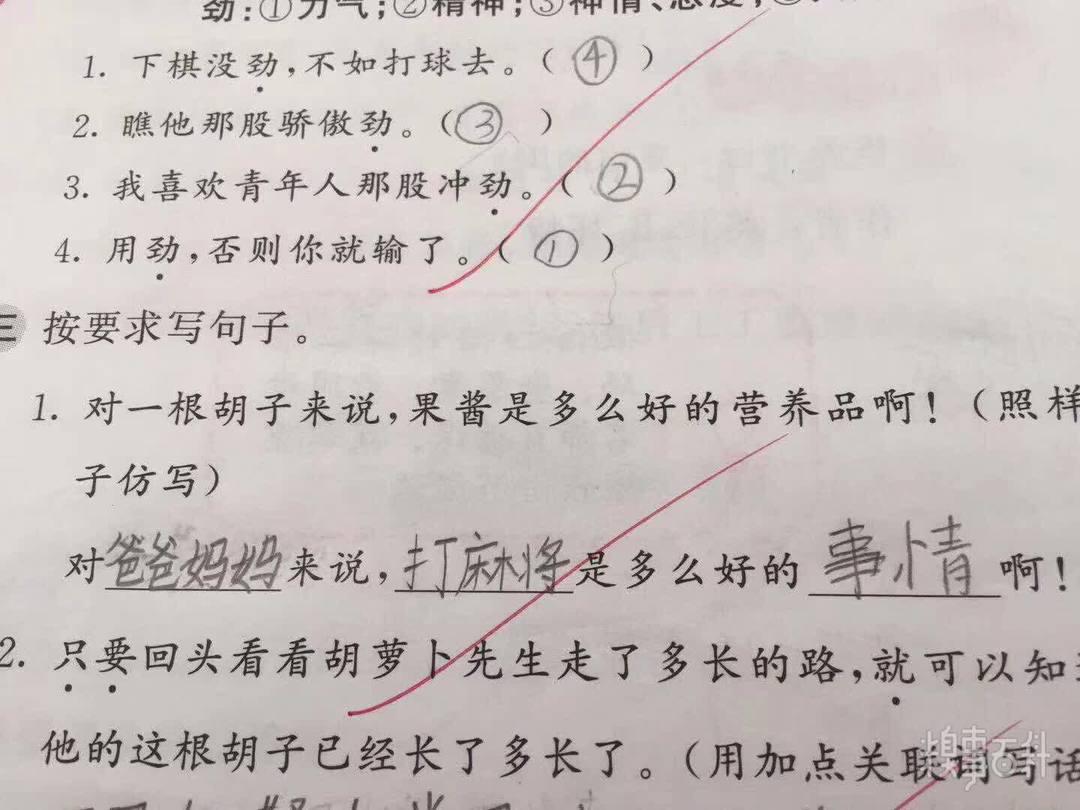 劲:①力气;②精神;③神情、态度;
1. 下棋没劲,不如打球去。(④)
2. 瞧他那股骄傲劲。(③)
3. 我喜欢青年人那股冲劲。(②)
4. 用劲,否则你就输了。(①)
三 按要求写句子。
1. 对一根胡子来说,果酱是多么好的营养品啊!(照样
子仿写)
对爸爸妈妈来说,打麻将是多么好的事情啊!
2. 只要回头看看胡萝卜先生走了多长的路,就可以知
他的这根胡子已经长了多长了。(用加点关联词写话
糗事百科